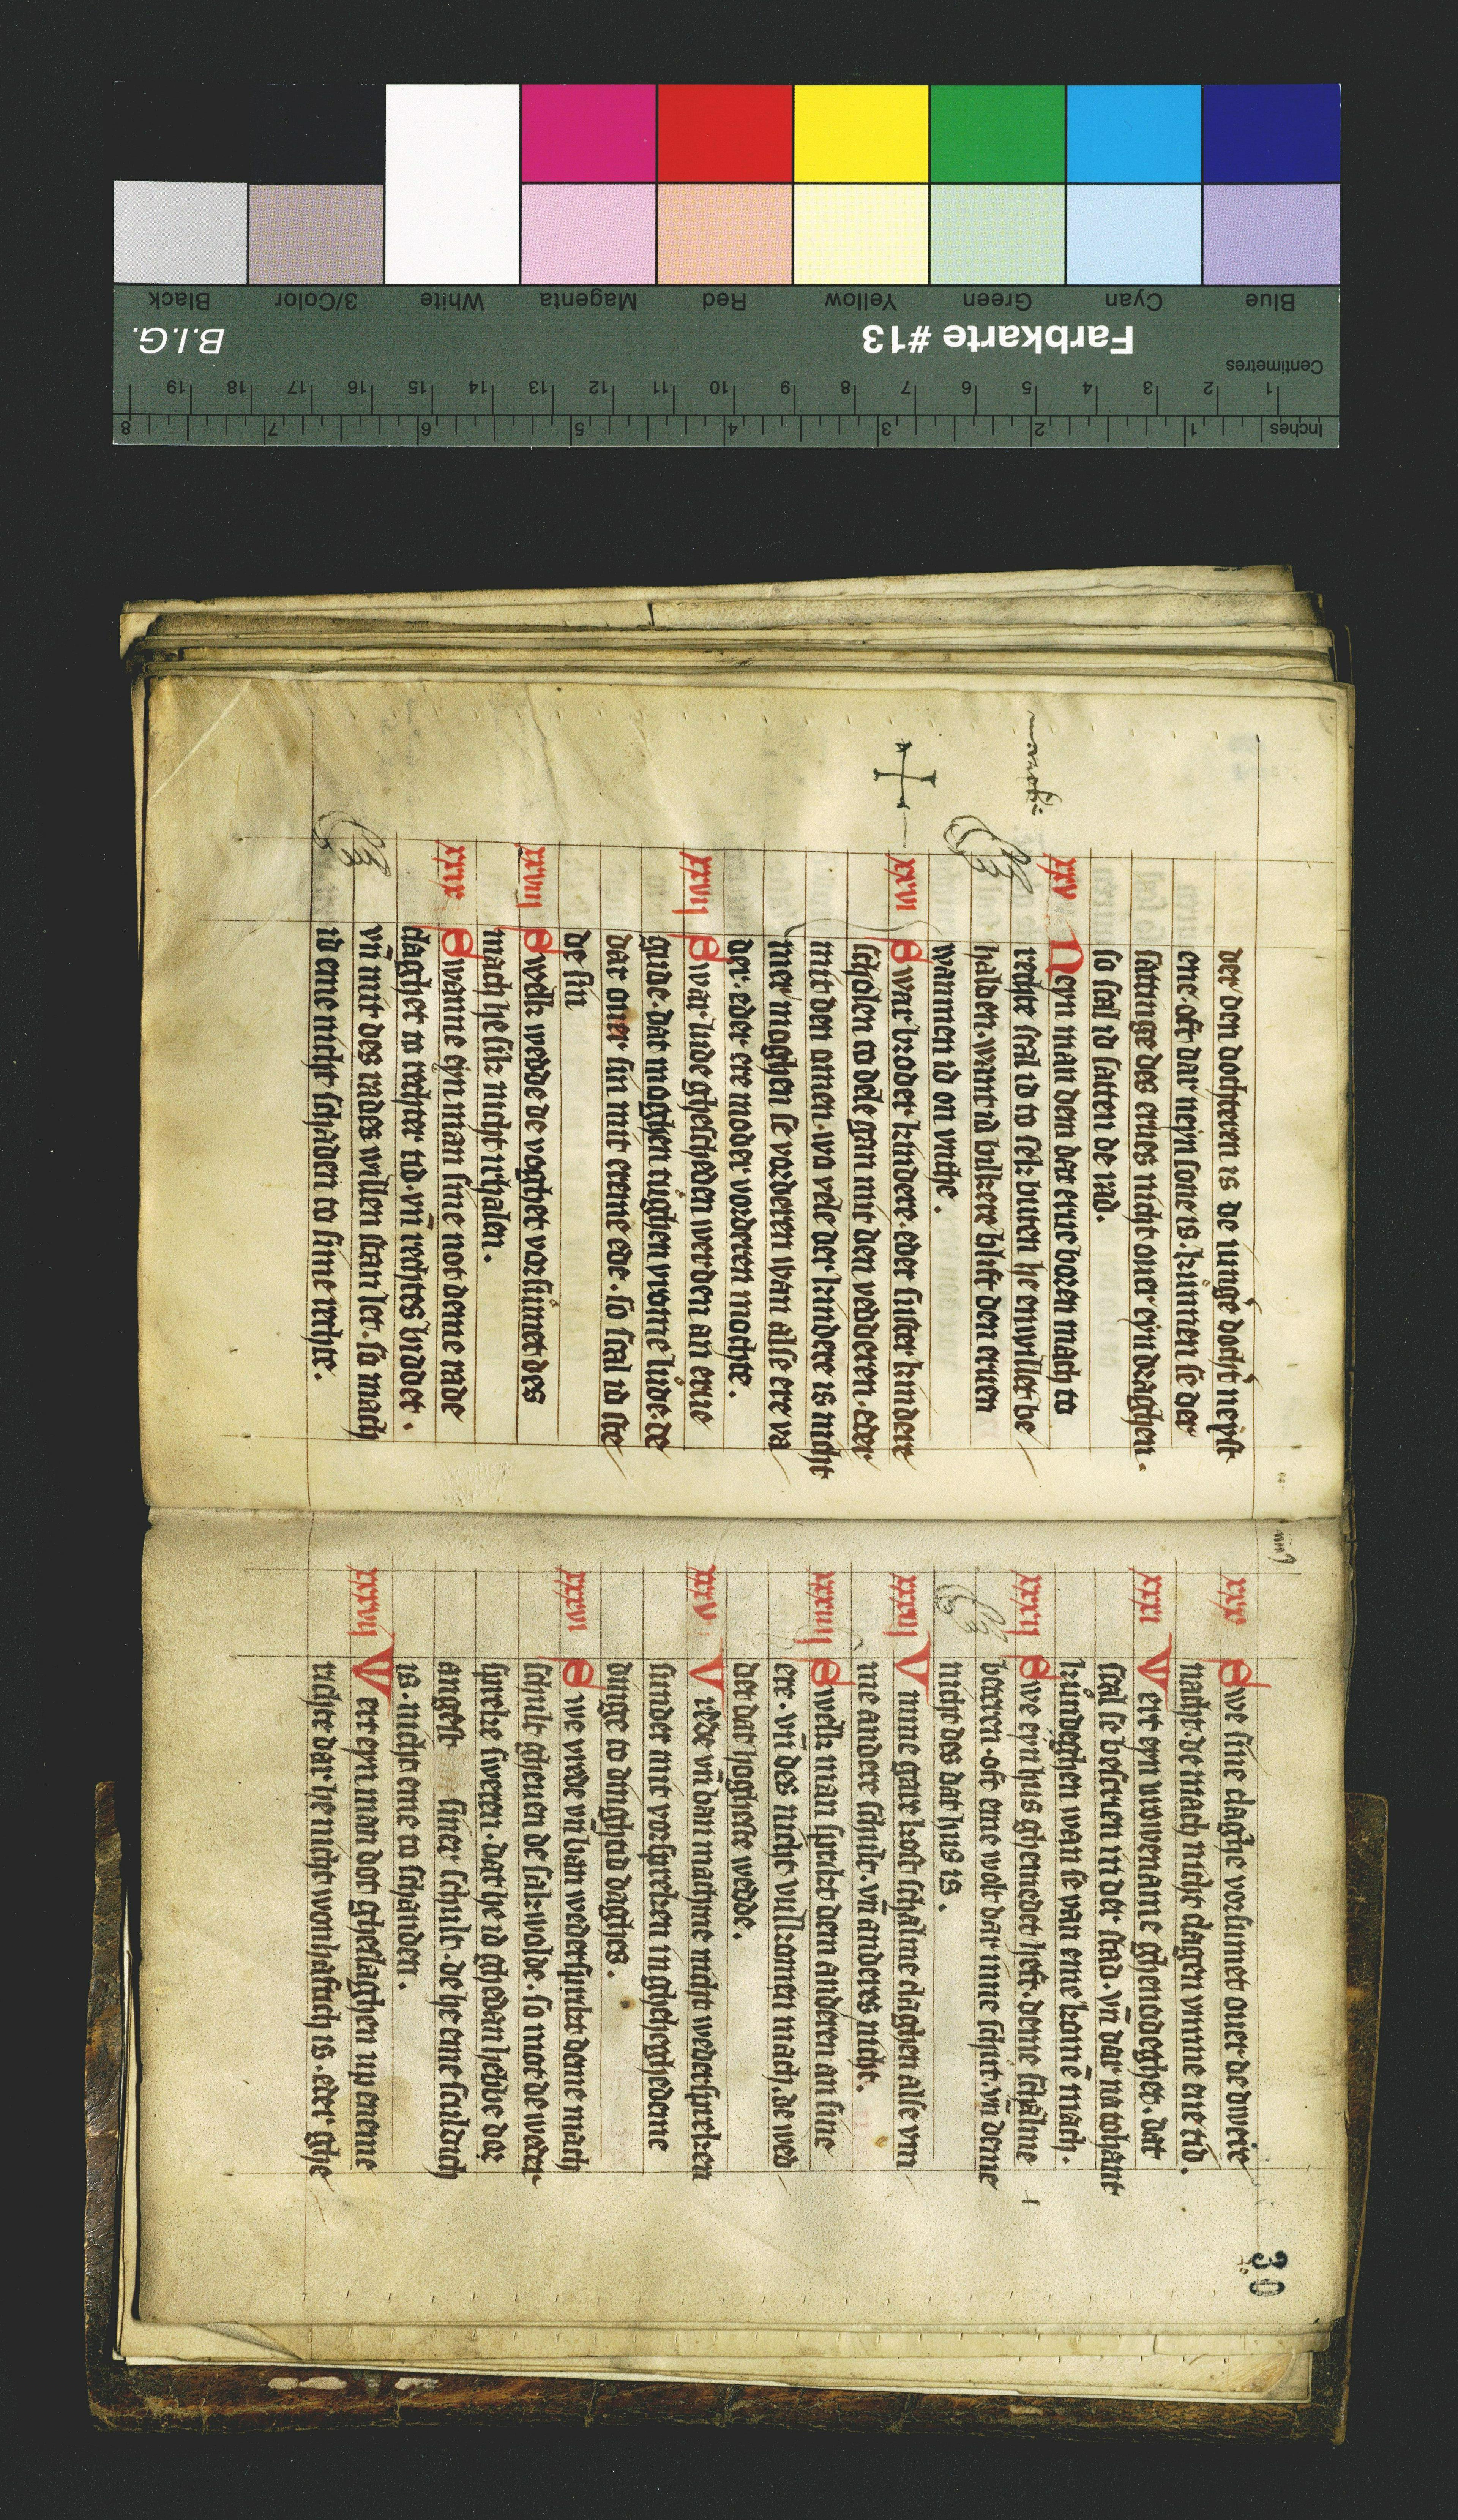 Black 3/Color White Magenta Red Yellow Green Cyan Blue
B.I.G. Farbkarte #13
Centimetres
1 2 3 4 5 6 7 8 9 10 11 12 13 14 15 16 17 18 19
Inches 1 2 3 4 5 6 7 8
der den dochteren is de iungē docht̄ neyst
eme. oft dar neyn sone is. kůnnen se der
sattinge des erues nicht ouer eyn draghen.
so scal id satten de rad.
xxv Neyn man dem dar erue boren mach to
rechte scal id to sek buten he en willet be
halden. want id bilkere blift den eruen
wanmen id on vnthe.
xxvi Swar broder kindere. eder suster kindere
scholen to dele gan mit den vedderen. eder
mit den omen. wo vele der kindere is nicht
mer moghen se vorderen wan alse ere va
der. eder ere moder vorderen mochte.
xxvij Swar lude ghescheden werden an erue
gude. dat moghen tůghen vrome lůde. de
dar ouer sin mit ereme ede. so scal id ste
de sin
xxviij Swelk wedde de voghet vorsůmet des
mach he sik nicht irhalen.
xxix Swanne eyn man sine not deme rade
claghet to rechter tid. vn̄ rechtes biddet.
vn̄ mit des rades willen stan let. so mach
id eme nicht schaden to sime rechte.
30
xxx Swe sine claghe vorsumet ouer de dweire
nacht. de mach nicht clagen vmme ene tid.
xxxi Vert eyn vrowename ghenodeghet. dat
scal se bescrien in der stad. vn̄ dar na tohant
kůndeghen wan se van eme konē mach.
xxxij Swe eyn hus ghemedet heft. deme schalme
beteren. oft eme wolt dar inne schůt. vn̄ deme
nicht des dat hus is.
xxxiij Vmme gare kost schalme claghen alse vm
me andere schult. vn̄ anderes nicht.
xxxiiij Swelk man sprikt dem anderen an sine
ere. vn̄ des nicht vulkomen mach. de wed
det dat hogheste wedde.
xxxv Vrede vn̄ ban machme nicht wederspreken
sunder mit vorspreken in gheheghedeme
dinge to dinghtid daghes.
xxxvi Swe vrede vn̄ ban wedersprikt deme mach
schult gheuen de sakwolde. so mot de weder
spreke sweren. dat he id ghedan hebbe dor
angest siner schult. de he eme sculdich
is. nicht eme to schanden.
xxxvij Vert eyn man dot gheslaghen up eneme
richte dar he nicht wonhaftich is. eder ghe